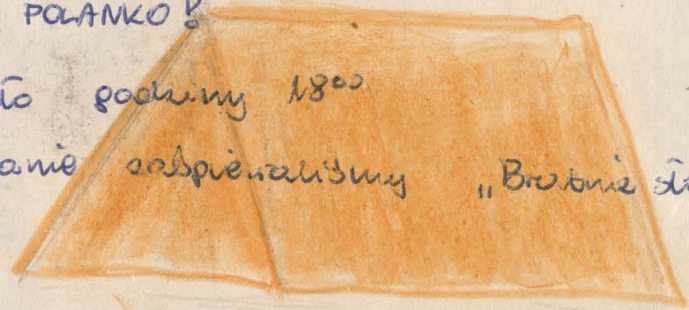 POLANKO!
do godziny 18⁰⁰
anie zaśpiewaliśmy „Bratnie sł